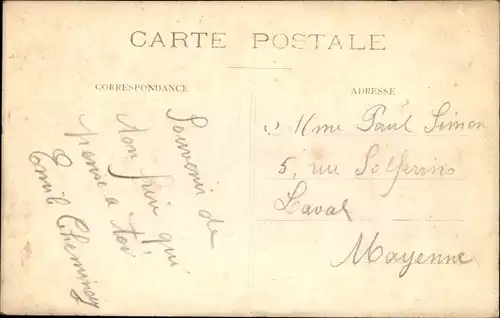 CARTE POSTALE
CORRESPONDANCE
Souvenir de
ton frère qui
pense a toi
Emile
ADRESSE
Mme Paul Simon
5, rue Solferino
Laval
Mayenne